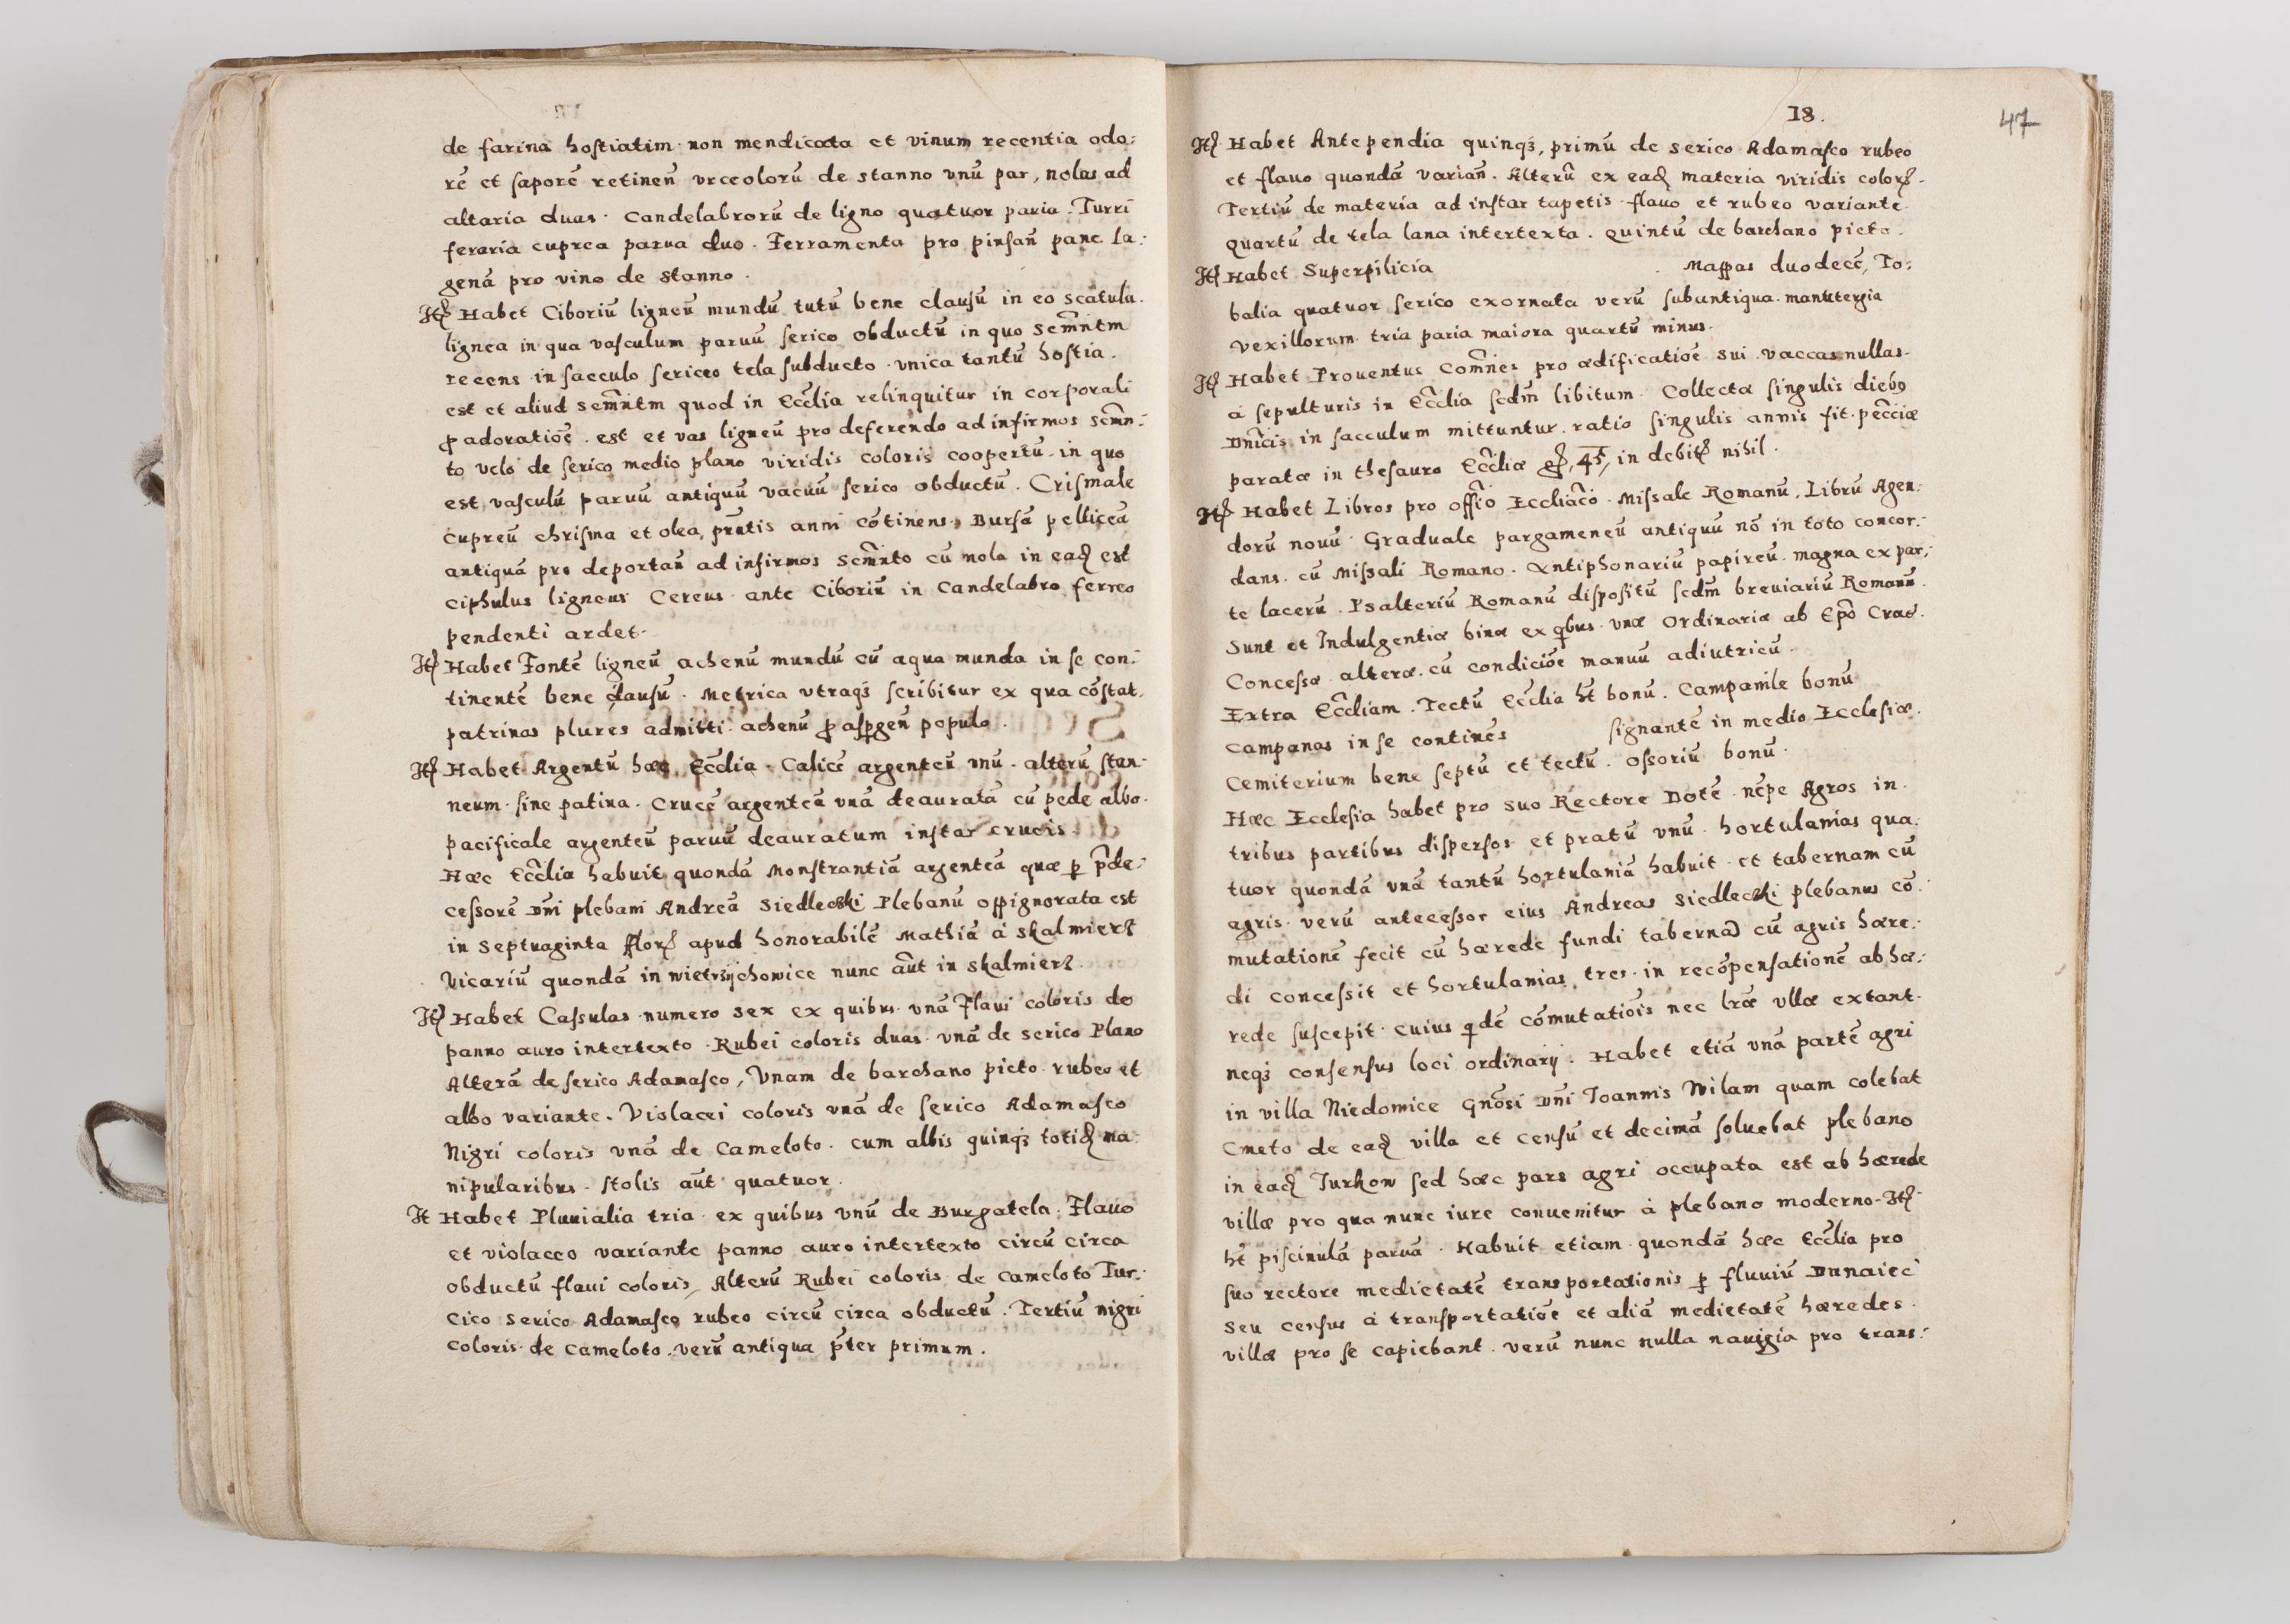 de farina hostiatim non mendicata et vinum recentia odo:
rē et saporē retineñ vrceolorū de stanno vnū par, nolas ad
altaria duas. Candelabrorū de ligno quatuor paria. Turri
feraria cuprea parua duo. Ferramenta pro pinsañ pane la:
genā pro vino de stanno.
Itꝫ Habet Ciboriū ligneū mundū tutū bene clausū in eo scatula
lignea in qua vasculum paruū serico obductū in quo Scm̄ntm
recens in sacculo sericeo tela subducto. vnica tantū hostia.
est et aliud Scm̄ntm quod in Eccl̄ia relinquitur in corporali
ꝓ adoratiōe. est et vas ligneū pro deferendo ad infirmos Scm̄n:
to velo de serico medio plano viridis coloris coopertū. in quo
est vasculū paruū antiquū vacuū serico obductū. Crismale
cupreū chrisma et olea, prn̄tis anni cōtinens, Bursā pelliceā
antiquā pro deportañ ad infirmos Scm̄nto cū nola in eadꝫ est
ciphulus ligneus Cereus ante Ciboriū in Candelabro ferreo
pendenti ardet.
Itꝫ Habet Fontē ligneū achenū mundū cū aqua munda in se con:
tinentē bene clausū. Metrica vtraqꝫ scribitur ex qua cōstat
patrinos plures admitti. achenū ꝓ aspergeñ populo.
Itꝫ Habet Argentū hæc Eccl̄ia. Calicē argenteū vnū. alterū stan:
neum. sine patina. Crucē argenteā vnā deauratā cū pede albo.
pacificale argenteū paruū deauratum instar crucis.
Hæc Eccl̄ia habuit quondā Monstrantiā argenteā quæ ꝑ p̄de:
cessorē Dn̄i plebani Andreā Siedlecki Plebanū oppignorata est
in Septuaginta florꝫ apud honorabilē Mathiā à Skalmierz
Vicariū quondā in Wietrzychowice nunc aūt in Skalmierz.
Itꝫ Habet Cassulas numero sex ex quibus vnā Flaui coloris de
panno auro intertexto. Rubei coloris duas. vnā de serico Plano
Alterā de serico Adamasco, Vnam de barchano picto rubeo et
albo variante. Violacei coloris vnā de serico Adamasco
Nigri coloris vnā de Cameloto. cum albis quinqꝫ totidꝫ ma:
nipularibus. stolis aūt quatuor.
It Habet Pluuialia tria ex quibus vnū de Burgatela: Flauo
et violaceo variante panno auro intertexto circū circa
obductū flaui coloris, Alterū Rubei coloris de Cameloto Tur:
cico Serico Adamasco rubeo circū circa obductū. Tertiū nigri
coloris de Cameloto. verū antiqua p̄ter primum.
18.
47
Itꝫ Habet Antependia quinqꝫ, primū de serico Adamasco rubeo
et flauo quondā variañ. Alterū ex eadꝫ materia viridis colorꝫ.
Tertiū de materia ad instar tapetis flauo et rubeo variante
Quartū de tela lana intertexta. Quintū de barchano picto.
Itꝫ Habet Superpilicia . Mappas duodecē, To:
balia quatuor serico exornata verū subantiqua. manutergia
Vexillorum tria paria maiora quartū minus.
Itꝫ Habet Prouentus Com̄nes pro ædificatiōe sui vaccas nullas.
à sepulturis in Eccl̄ia scdm̄ libitum. Collecta singulis diebꝰ
Dn̄icis in sacculum mittuntur. ratio singulis annis fit. pecc̄iæ
paratæ in thesauro Eccl̄iæ 45, in debitꝫ nihil.
Itꝫ Habet Libros pro offic̄io Eccliac̄o. Missale Romanū, Librū Agen:
dorū nouū. Graduale pargameneū antiquū nō in toto concor:
dans. cū Missali Romano. Antiphonariū papireū. magna ex par:
te lacerū. Psalteriū Romanū dispositū scdm̄ breuiariū Romanū.
Sunt et Indulgentiæ binæ ex qbus vnæ Ordinariæ ab Ep̄o Crac̄.
Concessæ alteræ cū condiciōe manuū adiutricū.
Extra Eccl̄iam. Tectū Eccl̄ia ht̄ bonū. Campanile bonū
Campanas in se continēs signantē in medio Ecclesiæ.
Cemiterium bene septū et tectū. Ossoriū bonū.
Hæc Ecclesia habet pro suo Rectore Dotē nēpe Agros in
tribus partibus dispersos et pratū vnū. hortulanias qua:
tuor quondā vnā tantū hortulaniā habuit et tabernam cū
agris. verū antecessor eius Andreas Siedlecki plebanus cō:
mutationē fecit cū hærede fundi tabernā cū agris hære:
di concessit et hortulanias tres in recōpensationē ab hæ:
rede suscepit. cuius qdē cōmutatiōis nec lræ vllæ extant.
neqꝫ consensus loci ordinarij. Habet etiā vnā partē agri
in villa Niedomice Gnōsi Dn̄i Joannis Wilam quam colebat
Cmeto de eadꝫ villa et censū et decimā soluebat plebano
in eadꝫ Jurkow sed hæc pars agri occupata est ab hærede
villæ pro qua nunc iure conuenitur à plebano moderno. Itꝫ
ht̄ piscinulā paruā. Habuit etiam quondā hæc Eccl̄ia pro
suo rectore medietatē transportationis ꝑ fluuiū Dunaiec
seu census à transportatiōe et aliā medietatē hæredes
villæ pro se capiebant. verū nunc nulla nauigia pro trans: